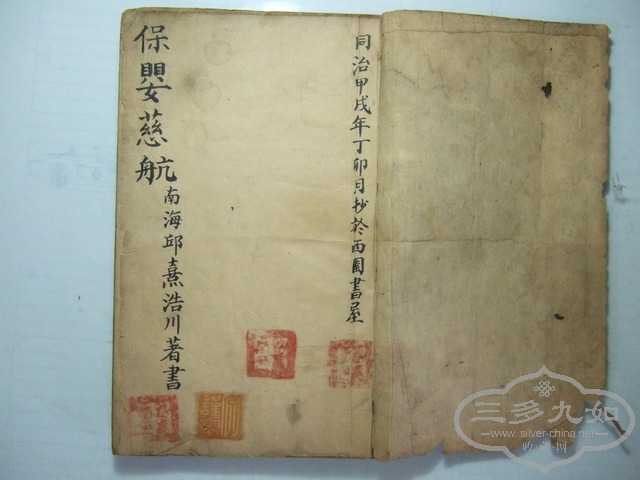 同治甲戌年丁卯月抄於西園書屋
保嬰慈航
南海邱熹浩川著書
三多九如
www.silver-china.net
收藏网